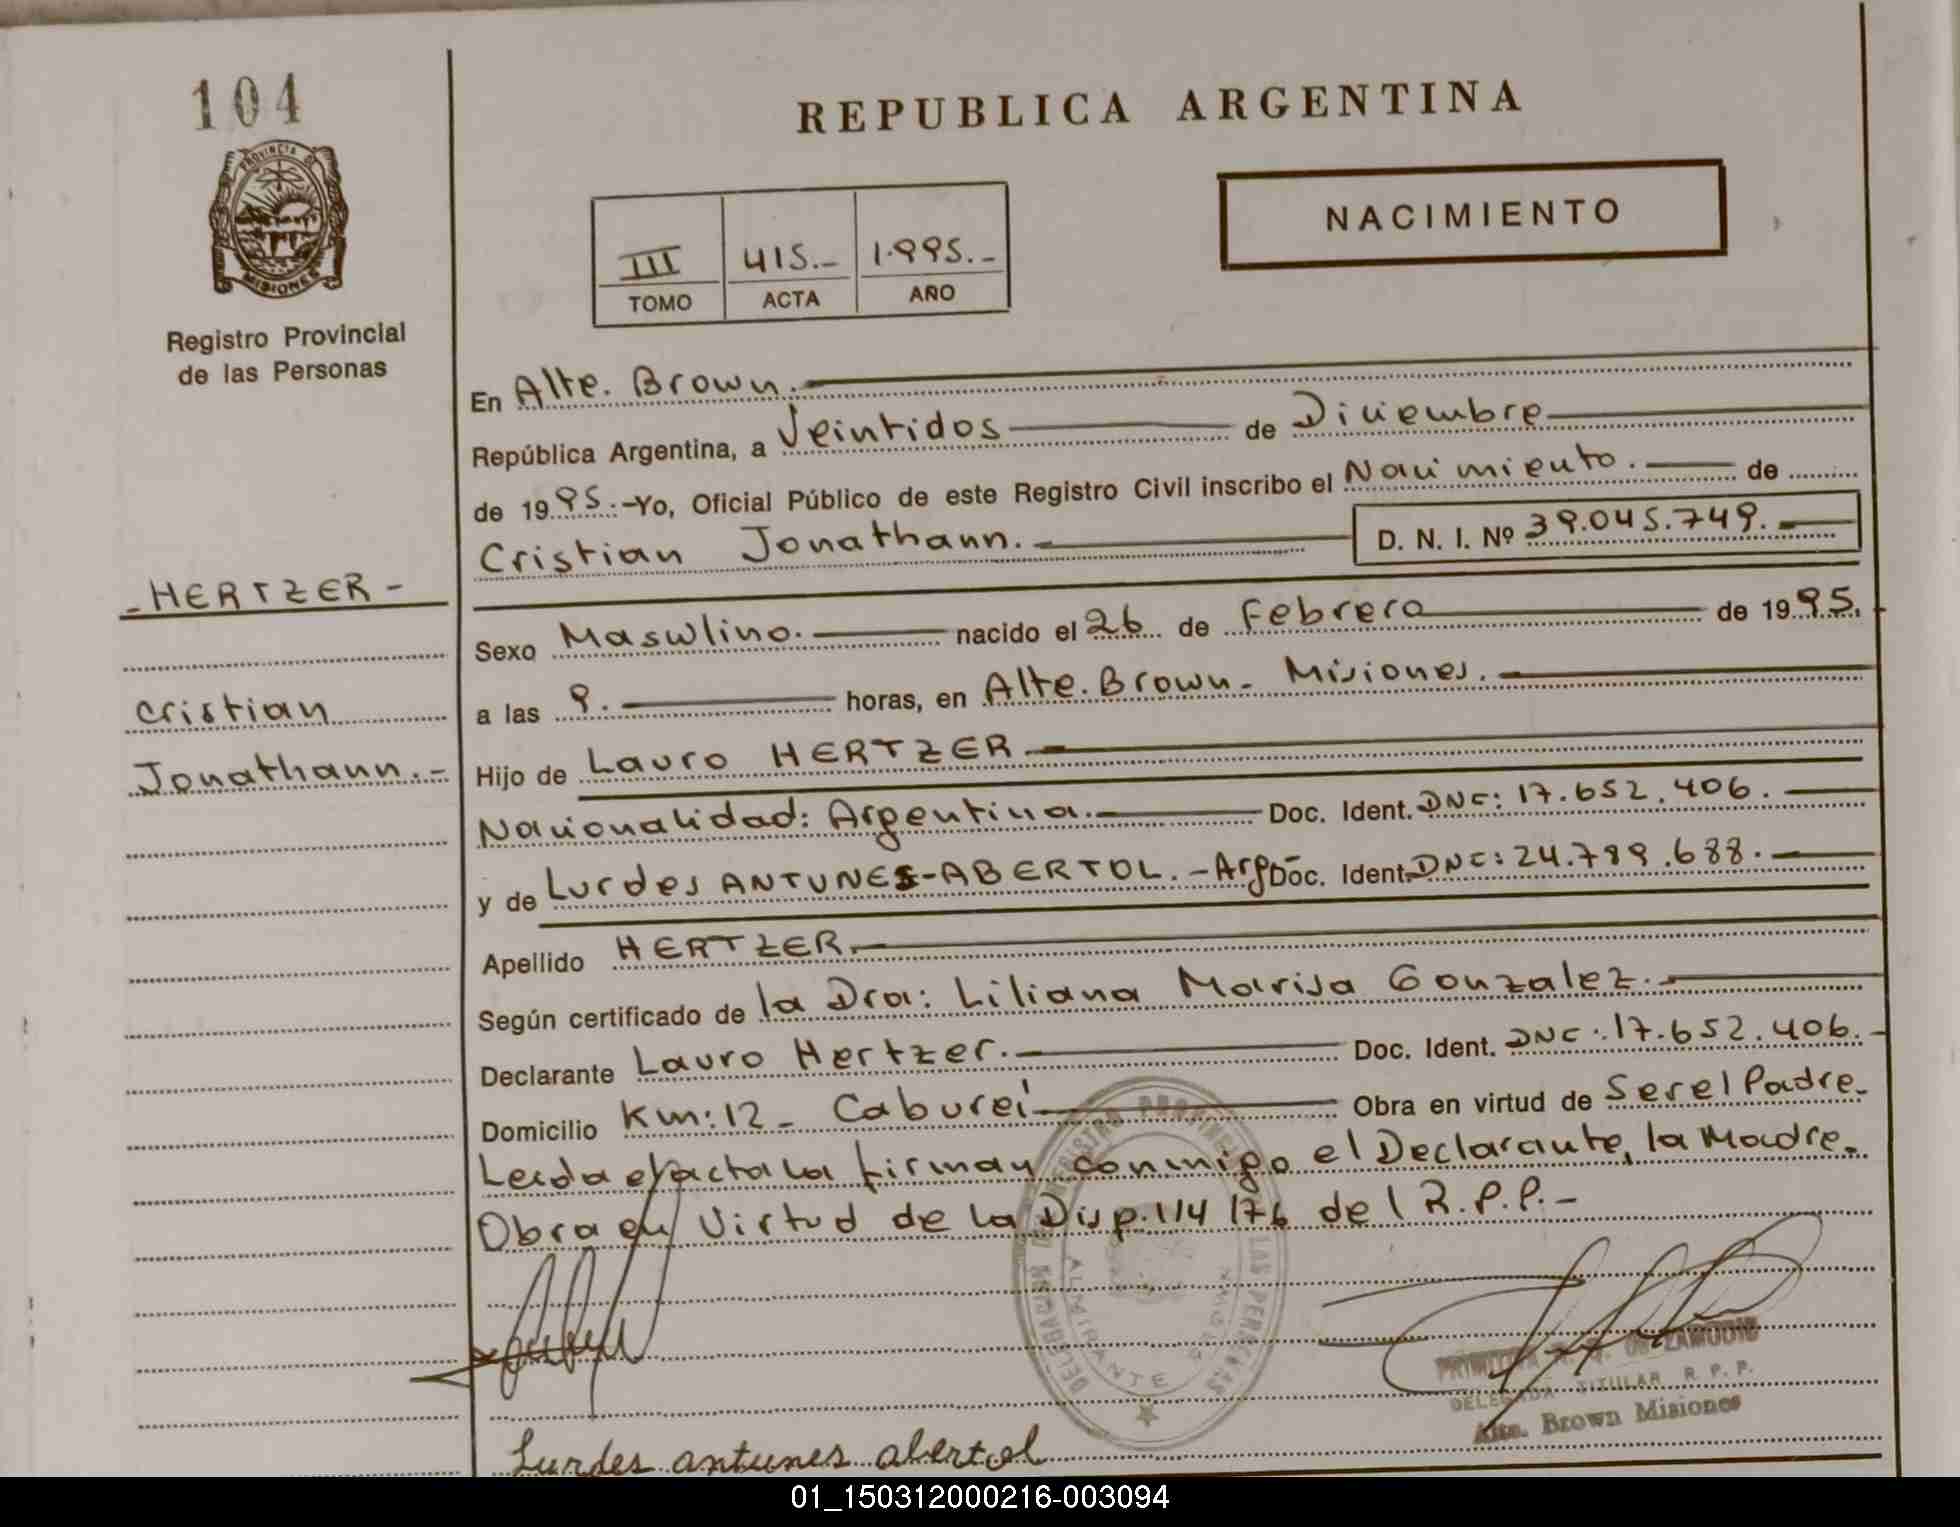 104
PROVINCIA DE
MISIONES
Registro Provincial
de las Personas
REPUBLICA ARGENTINA
NACIMIENTO
III 415.- 1.995.-
TOMO ACTA AÑO
En Alte. Brown.
República Argentina, a Veintidos de Diciembre
de 1995.-Yo, Oficial Público de este Registro Civil inscribo el Nacimiento. de
Cristian Jonathann. D. N. I. Nº 39.045.749.
- HERTZER -
Cristian
Jonathann.-
Sexo Masculino. nacido el 26 de Febrero de 1995.
a las 9. horas, en Alte. Brown - Misiones.
Hijo de Lauro HERTZER
Nacionalidad: Argentina. Doc. Ident. DNI: 17.652.406.
y de Lurdes ANTUNES-ABERTOL.-Arg- Doc. Ident. DNI: 24.789.688.
Apellido HERTZER
Según certificado de la Dra: Liliana Marisa Gonzalez.
Declarante Lauro Hertzer. Doc. Ident. DNI: 17.652.406.-
Domicilio Km: 12 - Cabureí Obra en virtud de Ser el Padre.
Leida el acta la firman conmigo el Declarante, la Madre.
Obra en Virtud de la Disp. 114/76 del R.P.P.-
DELEGADA TITULAR R. P. P.
Alte. Brown Misiones
Lurdes antunes abertol
01_150312000216-003094